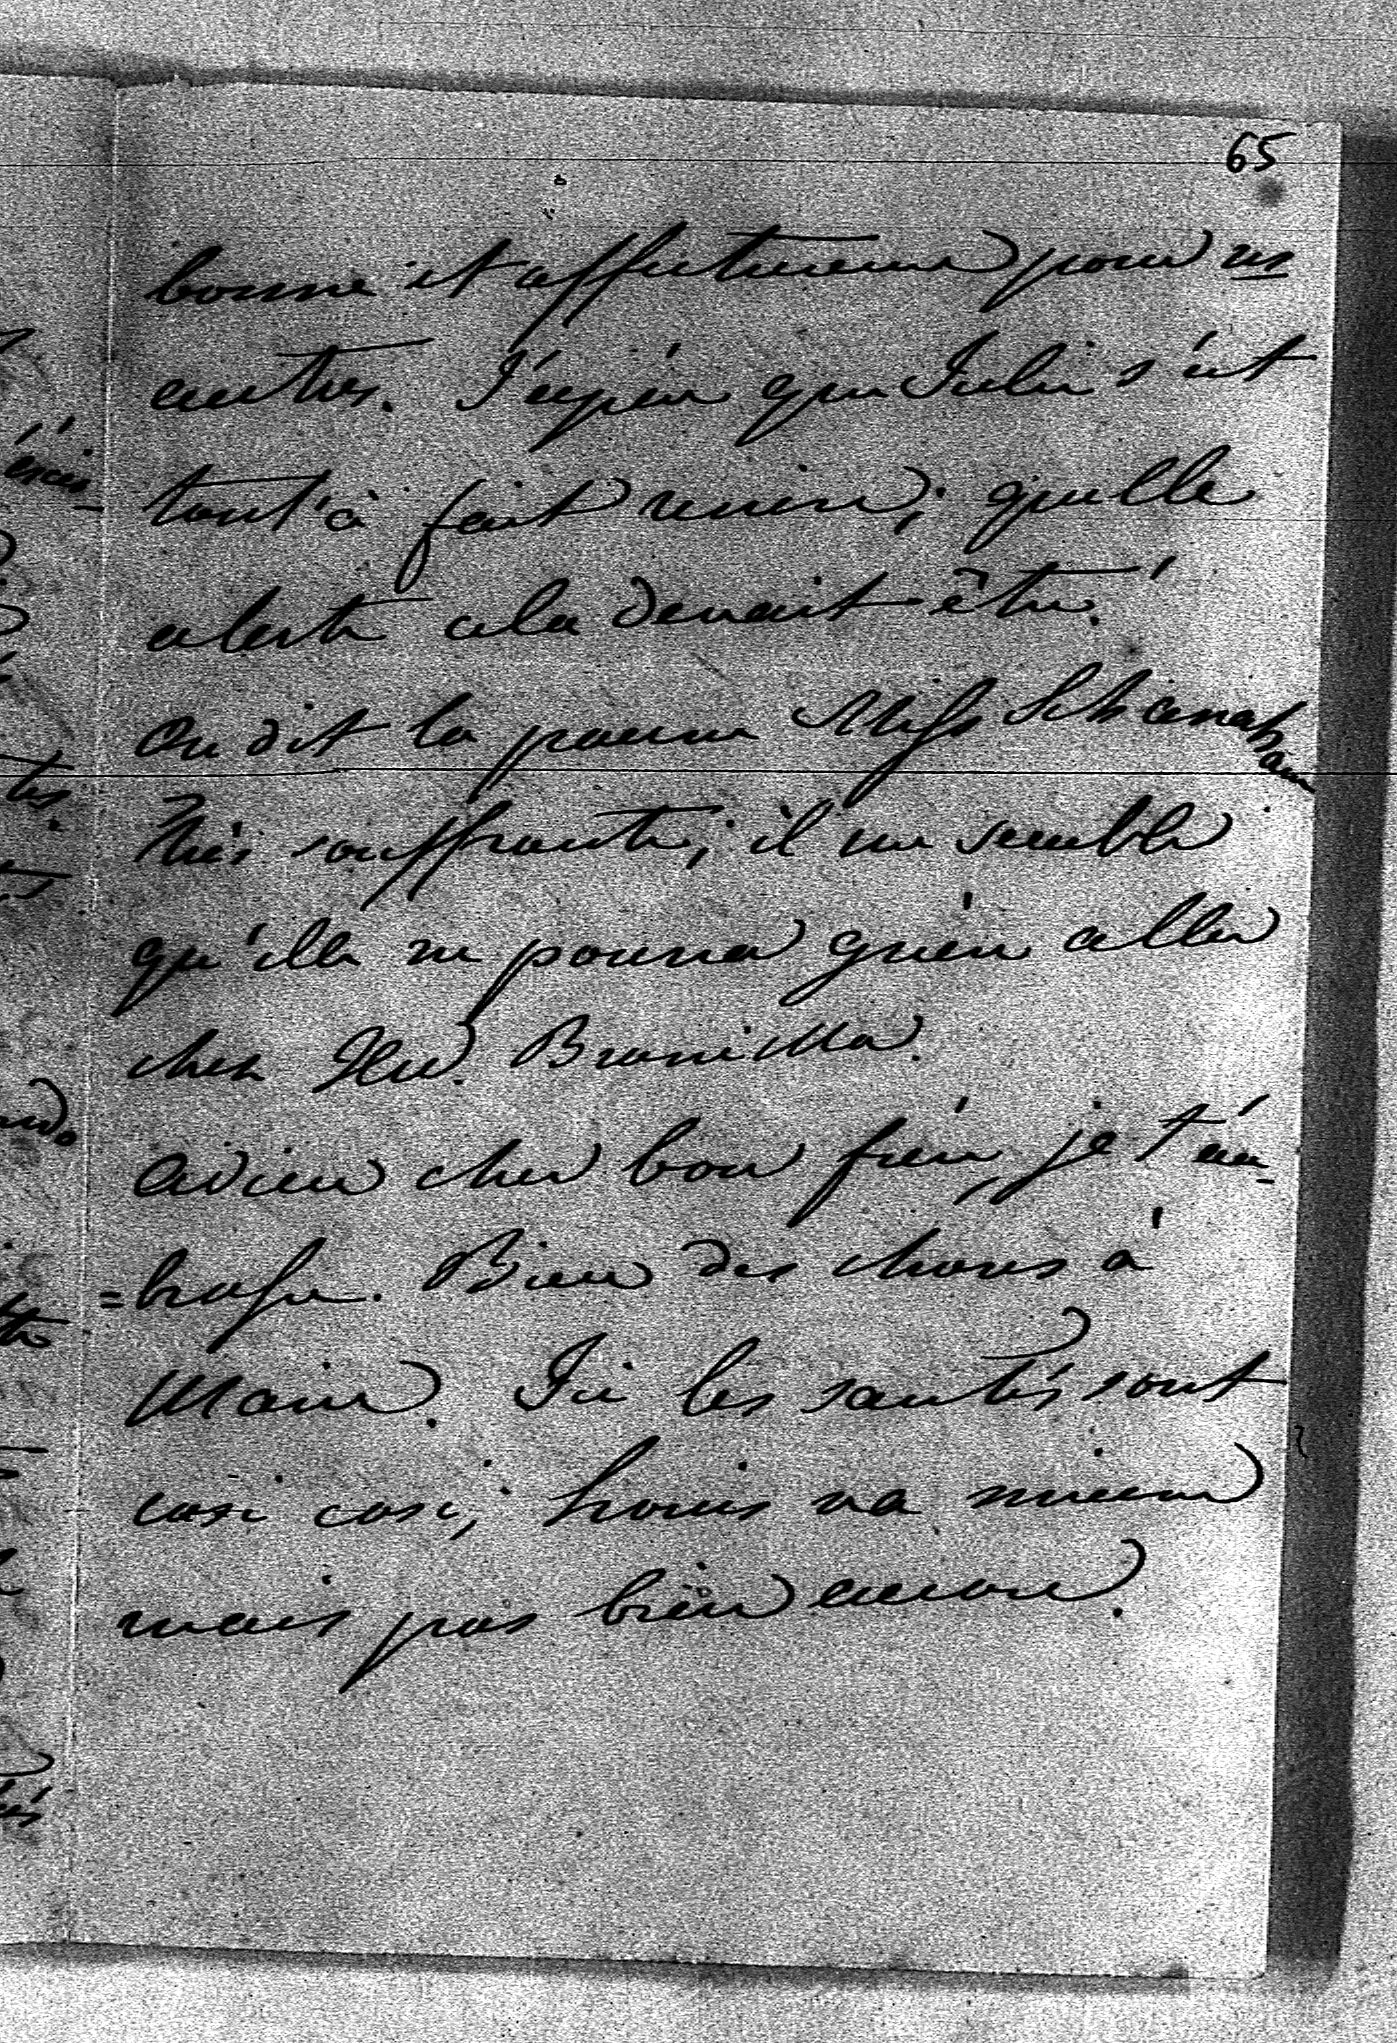 65
bonne et affectueuse pour us
autres. J'espère que Julie s'est
tout à fait remise; quelle
alerte cela devait être!
On dit la pauvre Miss
très souffrante; il me semble
qu'elle ne pourra guère aller
chez Branicka.
adieu cher bon frère, je t'em-
=brasse. Bien des choses à
Marie. Ici les santés sont
cosi cosi; Louis va mieux
mais pas bien encore.